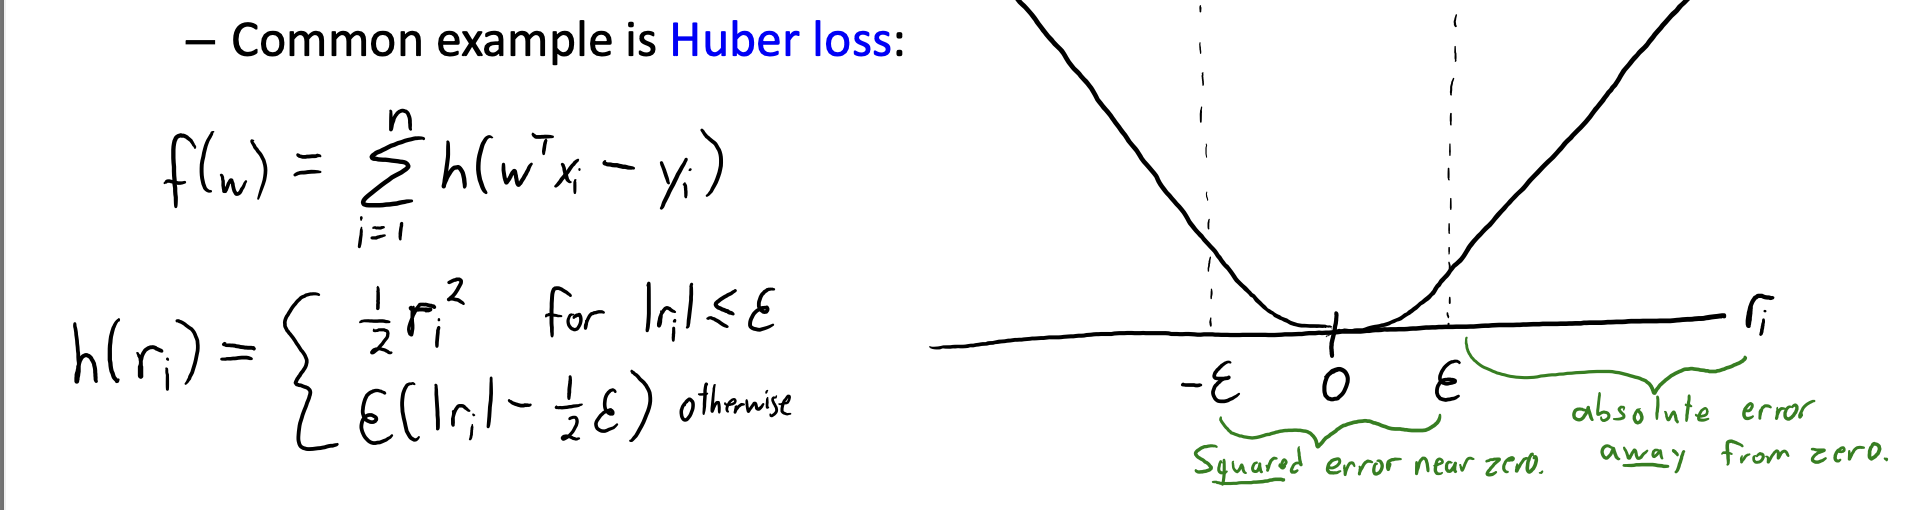 – Common example is Huber loss:
f(w) = ∑_{i=1}^{n} h(wᵀxᵢ – yᵢ)
h(rᵢ) = { ½rᵢ² for |rᵢ| ≤ ε
ε(|rᵢ| – ½ε) otherwise
rᵢ
-ε 0 ε
Squared error near zero.
absolute error
away from zero.